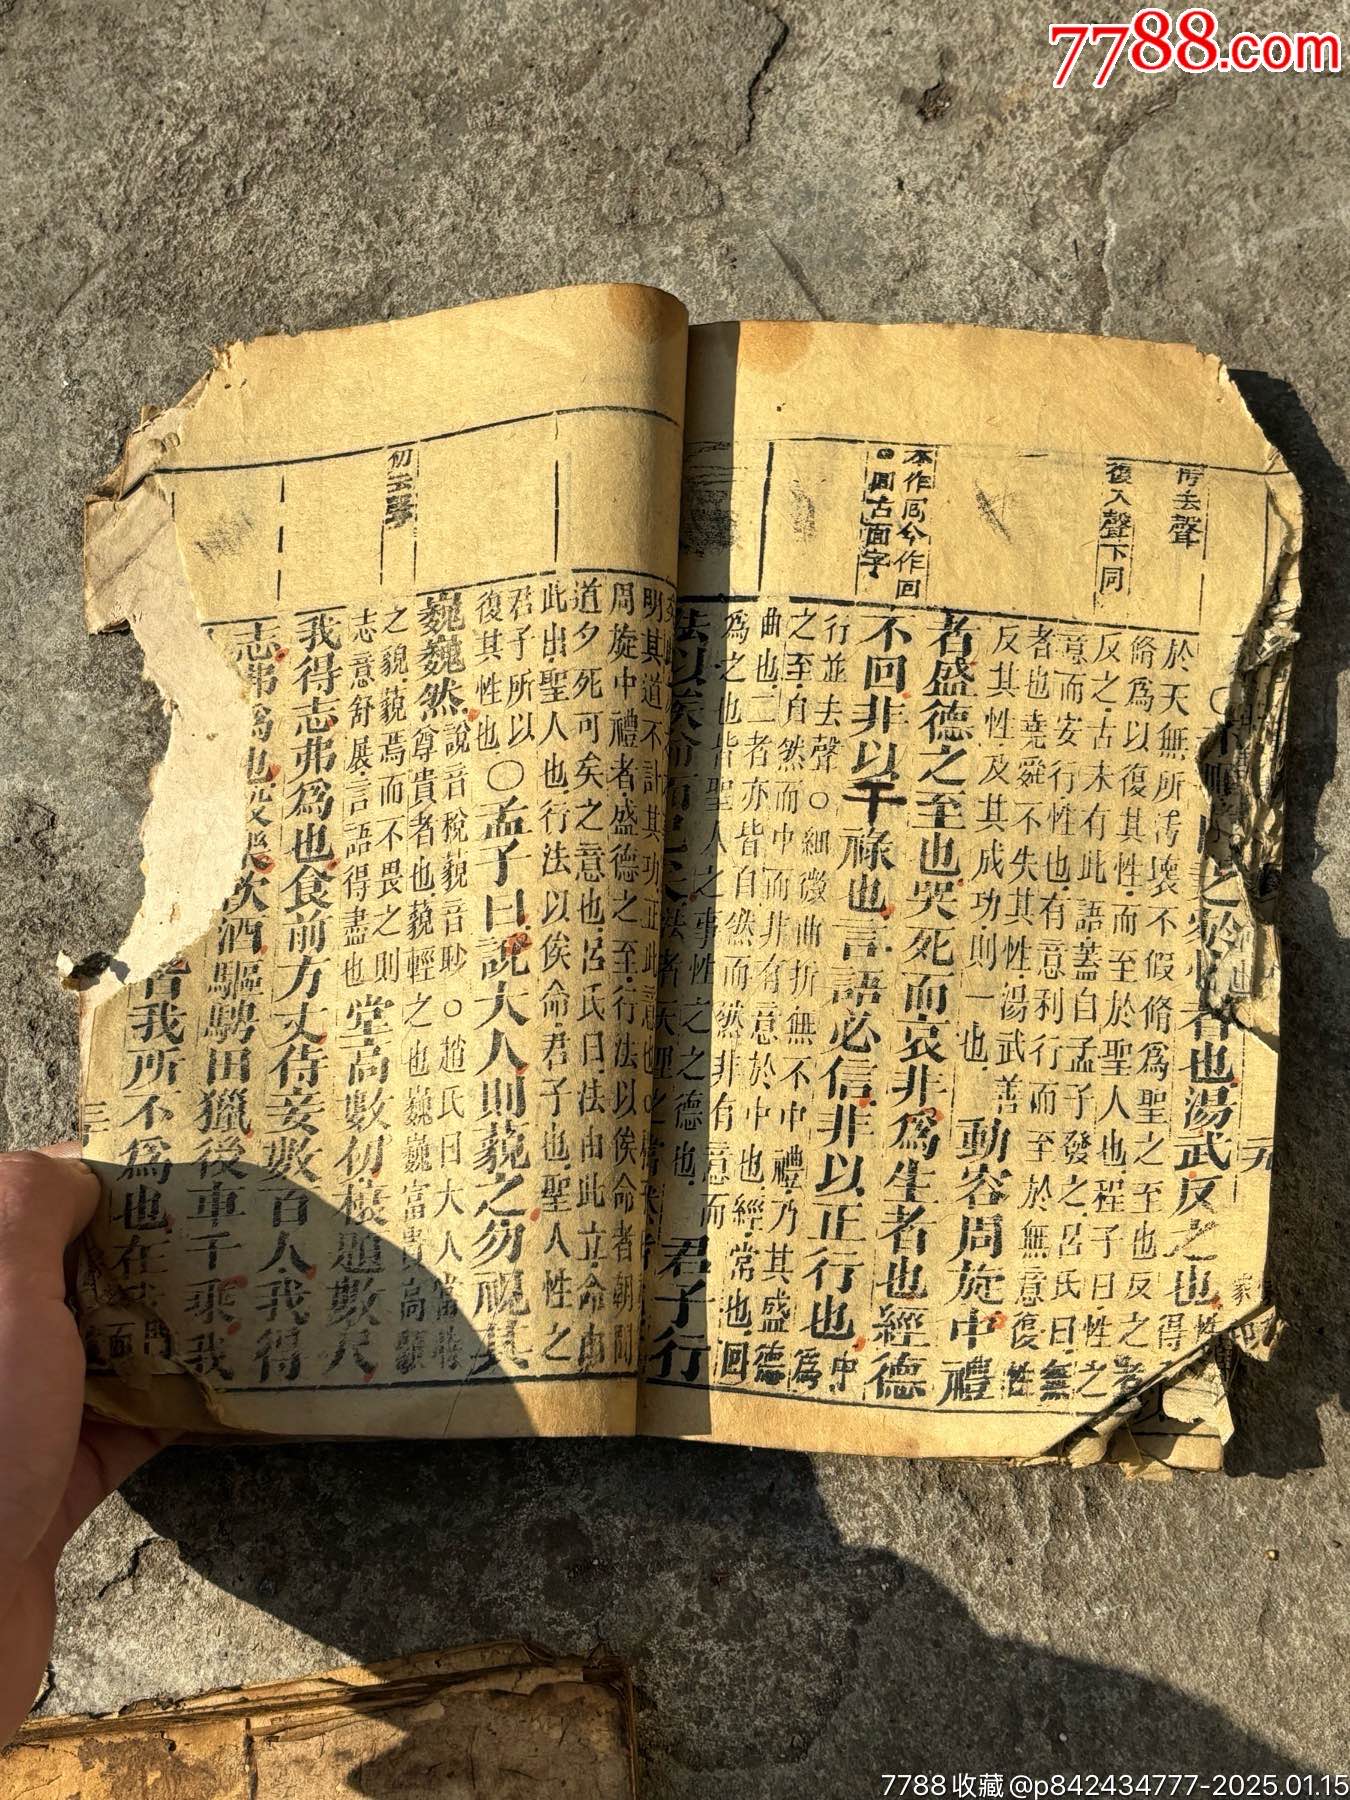 7788.com
行去聲
復入聲下同
本作囘今作回
○囬古面字
於天無所汚壞不假脩爲聖之至也反之者
脩爲以復其性而至於聖人也程子曰性之
反之古未有此語蓋自孟子發之呂氏曰無
意而安行性也有意利行而至於無意復性
者也堯舜不失其性湯武善
反其性及其成功則一也
動容周旋中禮
者盛德之至也哭死而哀非爲生者也經德
不回非以干祿也言語必信非以正行也
中爲
行並去聲○細微曲折無不中禮乃其盛德
之至自然而中而非有意於中也經常也回
曲也二者亦皆自然而然非有意而
爲之也皆聖人之事性之之德也
君子行
法以俟命而已矣
法者天理之
明其道不計其功正此意也
周旋中禮者盛德之至行法以俟命者朝聞
道夕死可矣之意也呂氏曰法由此立命由
此出聖人也行法以俟命君子也聖人性之
君子所以
復其性也
○孟子曰說大人則藐之勿視其
巍巍然
說音稅藐音眇○趙氏曰大人當時
尊貴者也藐輕之也巍巍富貴高顯
之貌藐焉而不畏之則
志意舒展言語得盡也
堂高數仞榱題數尺
我得志弗爲也食前方丈侍妾數百人我得
志弗爲也般樂飲酒驅騁田獵後車千乘我
皆我所不爲也在
7788收藏@p842434777-2025.01.15